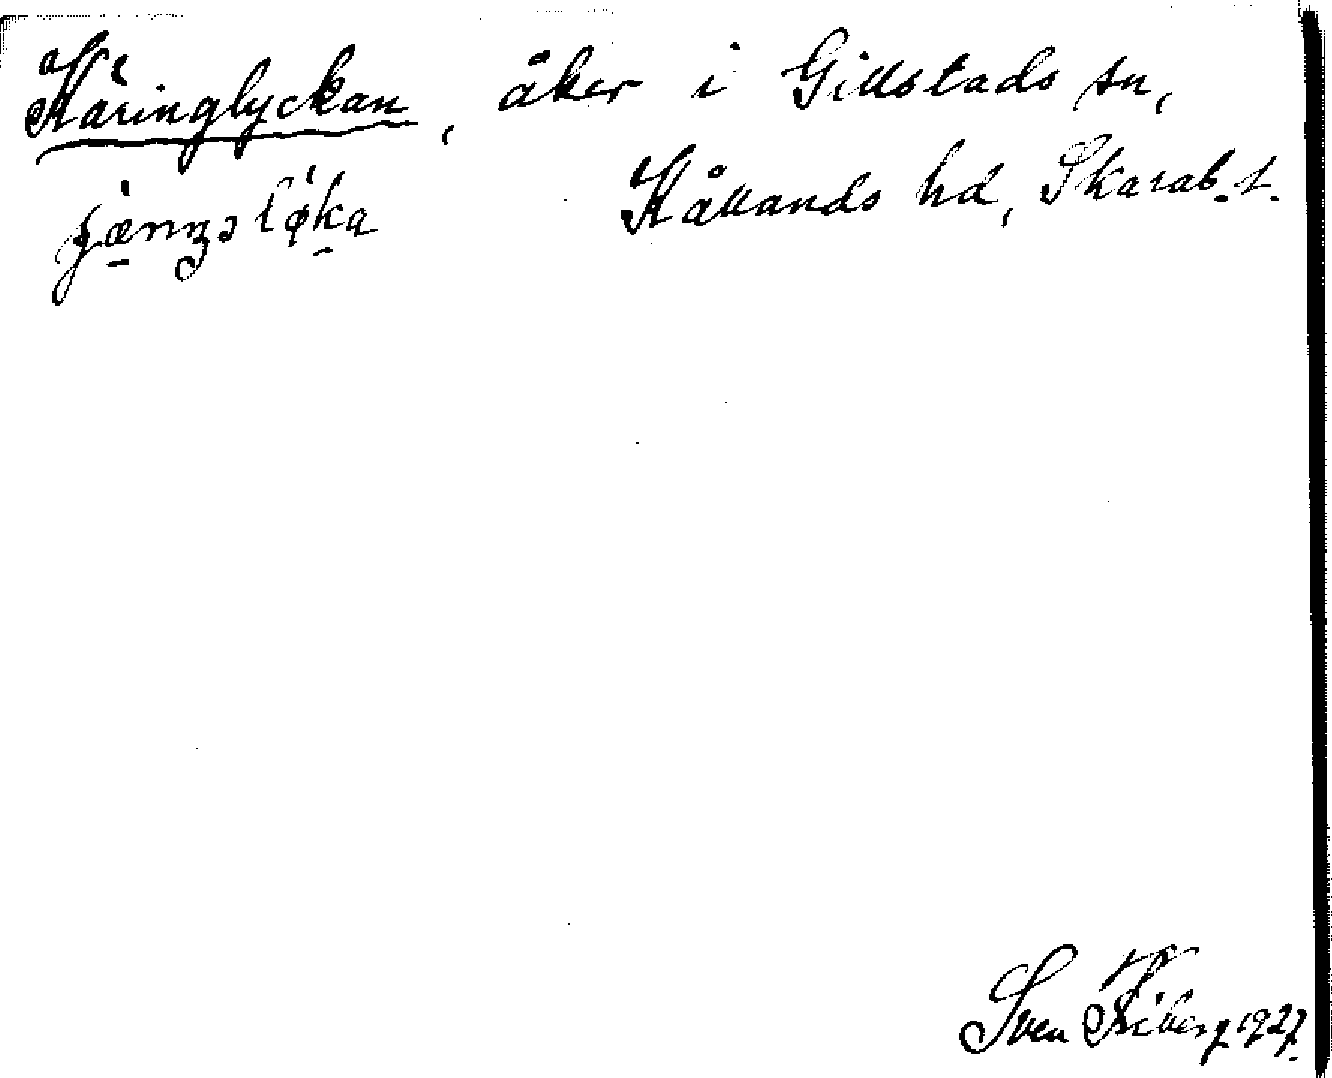 Käringlyckan, åker i Gillstads sn,
Kållands hd, Skarab. l.
Sven Kiberg 1927.